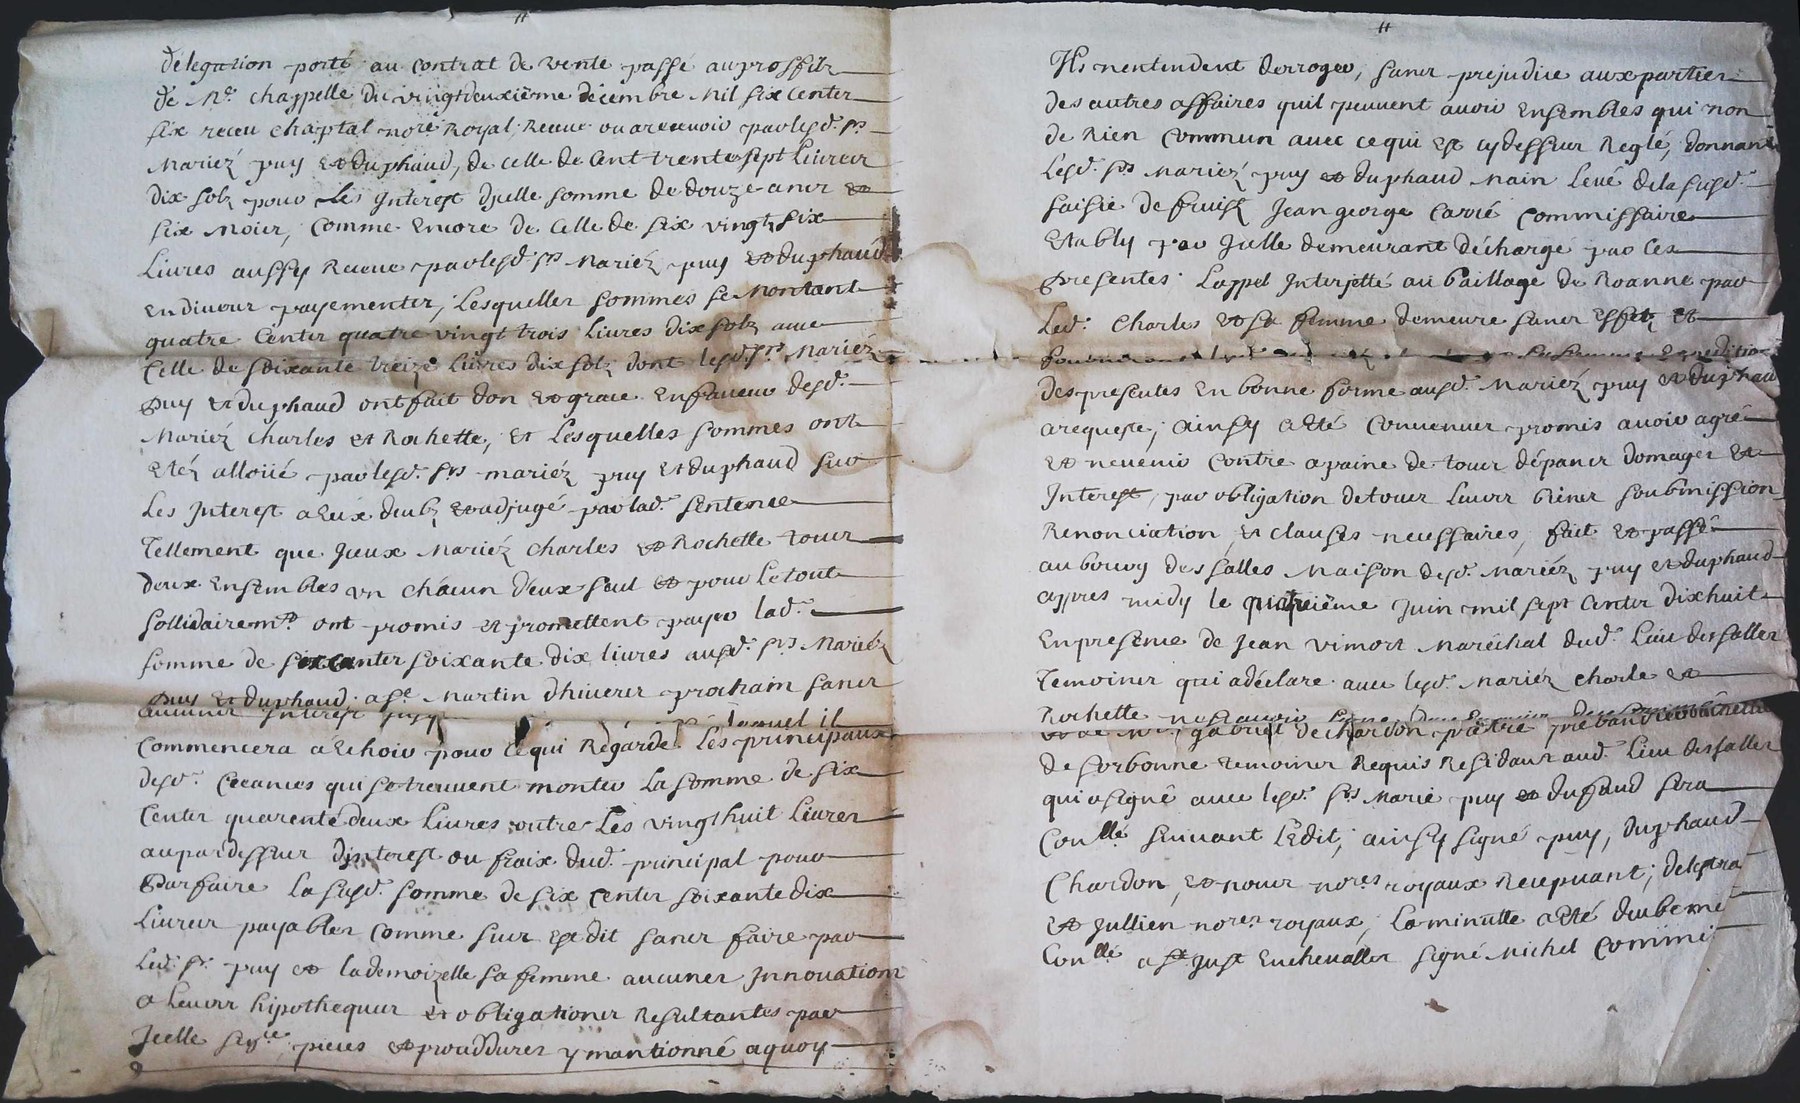 délegation porté au contrat de vente passé au proffitz
de Mr. chappelle du vingtdeuxième décembre Mil six Centz
six receu chaptal nore Royal, Receue ou arecevoir par lesd. srs
Mariéz puy et duphaud, de celle de Cent trente sept Livres
dix solz pour Les Interest d'jcelle somme de douze ans et
six Mois, Comme Encore de Celle de six vingt six
Livres aussy Receue par lesd. srs Mariéz puy et duphaud
En divers payements, Lesquelles sommes se Montant
quatre Cents quatre vingt trois Livres dix solz avec
Celle de soixante treize Livres dix solz dont lesd. srs Mariéz
puy et duphaud ont fait don et grace En faveur desd.
Mariéz Charles et Rochette, Et Lesquelles sommes ont
Etéz alloüé par lesd. srs mariéz puy Et duphaud sur
Les Interest a Eux deubz et adjugé par lad. sentence
Tellement que Jceux Mariéz Charles et Rochette tous
deux Ensembles un chácun d'eux seul et pour Le tout
sollidairemt. ont promis et promettent payer lad.
somme de six cents soixante dix livres ausd. srs Mariéz
puy et duphaud a St. Martin d'hivers prochain sans
aucuns Interest lequel il
Commencera a Echoir pour cequi Régarde Les principaux
desd. Creances qui se treuvent monter La somme de six
Cents quarente deux Livres outre Les vingt huit Livres
aupardessus d'jnterest ou fraix dud. principal pour
Parfaire La susd. somme de six Cents soixante dix
Livres payables Comme sus Est dit sans faire par
Led. sr. puy et lademoizelle sa femme aucunes Jnnovations
a Leurs hipothèques et obligations Resultantes par
Jcelle pieces et procddures y mantionné aquoy
Ils nentendent derroger, sans prejudice aux parties
des autres affaires quil peuvent avoir Ensembles qui non
de Rien Commun avec ce qui Est cydessus Reglé, donnant
Lesd. srs Mariéz puy et duphaud Main Levé dela susd.
saisie de fruist Jean george Carré Commissaire
Etably par Jcelle demeurant déchargé par Ces
presentes. Lappel Interjetté au baillage de Roanne par
Led. Charles et sa femme demeure sans Effet, Et
Expeditio
des presentes En bonne forme ausd. Mariéz puy et duphau
arequeste, ainsy a Eté Convenus promis avoir agré
et nevenir Contre apaine de tous dépans domages et
Interest, par obligation de tous Leurs biens soubmission
Renonciation, et clauses necessaires, fait et passé
au bourg des salles Maison desd. Mariéz puy et duphaud
appres midy le quatreième Juin mil sept Cents dix huit
En presence de Jean vimort Maréchal dud. Lieu des salles
Temoins qui a déclaré avec lesd. Mariéz Charle et
Rochette
et de Mre. gabriel de chardon prêtre
de sorbonne temoins Requis Residant aud. Lieu des salles
qui a signé avec lesd. srs Marié puy et dufaud sera
Conllé suivant L'Edit, ainsy signé puy, duphaud
Chardon, et nous nores royaux Recepvant, delestra
et Jullien nores royaux, La minutte a Eté deubeme
Conllé a St. Just Enchevallet signé Michel Commi